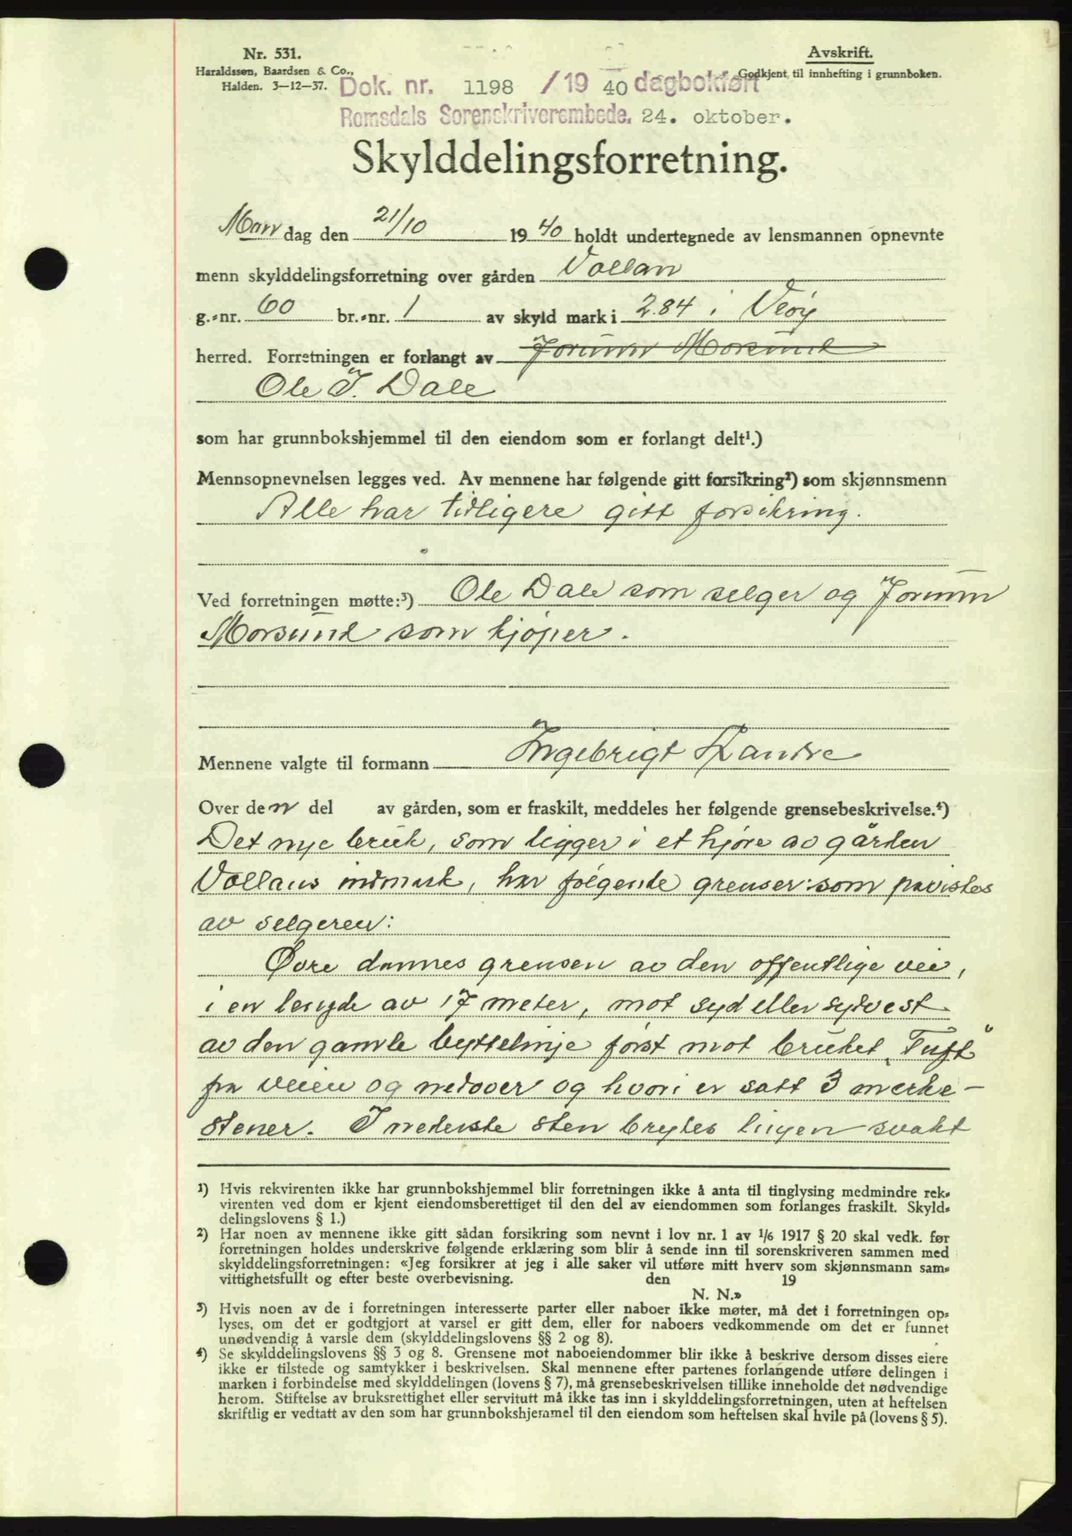 Nr. 531.
Haraldssøn, Baardsen & Co.,
Halden. 3-12-37.
Avskrift.
Godkjent til innhefting i grunnboken.
Dok. nr. 1198 /19 40 dagbokført
Romsdals Sorenskriverembede. 24. oktober.
Skylddelingsforretning.
Man dag den 21/10 1940 holdt undertegnede av lensmannen opnevnte
menn skylddelingsforretning over gården Vollan
g.-nr. 60 br.-nr. 1 av skyld mark i 2.84 i Veøy
herred. Forretningen er forlangt av Jorunn Morsund
Ole J. Dale
som har grunnbokshjemmel til den eiendom som er forlangt delt¹.)
Mennsopnevnelsen legges ved. Av mennene har følgende gitt forsikring²) som skjønnsmenn
Alle har tidligere gitt forsikring.
Ved forretningen møtte:³) Ole Dale som selger og Jorunn
Morsund som kjøper.
Mennene valgte til formann Ingebrigt
Over den del av gården, som er fraskilt, meddeles her følgende grensebeskrivelse.⁴)
Det nye bruk, som ligger i et hjøre av gården
Vollans inmark, har følgende grenser: som paavistes
av selgeren:
Øvre dannes grensen av den offentlige vei,
i en lengde av 17 meter, mot syd eller sydvest
av den gamle byttelinje først mot bruket „Tuft"
fra veien og nedover og hvori er satt 3 merke-
stener. I nederste sten brytes linjen svakt
¹) Hvis rekvirenten ikke har grunnbokshjemmel blir forretningen ikke å anta til tinglysing medmindre rek-
virenten ved dom er kjent eiendomsberettiget til den del av eiendommen som forlanges fraskilt. Skyld-
delingslovens § 1.)
²) Har noen av mennene ikke gitt sådan forsikring som nevnt i lov nr. 1 av 1/6 1917 § 20 skal vedk. før
forretningen holdes underskrive følgende erklæring som blir å sende inn til sorenskriveren sammen med
skylddelingsforretningen: «Jeg forsikrer at jeg i alle saker vil utføre mitt hverv som skjønnsmann sam-
vittighetsfullt og efter beste overbevisning. den 19
N. N.»
³) Hvis noen av de i forretningen interesserte parter eller naboer ikke møter, må det i forretningen op-
lyses, om det er godtgjort at varsel er gitt dem, eller for naboers vedkommende om det er funnet
unødvendig å varsle dem (skylddelingslovens §§ 2 og 8).
⁴) Se skylddelingslovens §§ 3 og 8. Grensene mot naboeiendommer blir ikke å beskrive dersom disses eiere
ikke er tilstede og samtykker i beskrivelsen. Skal mennene efter partenes forlangende utføre delingen i
marken i forbindelse med skylddelingen (lovens § 7), må grensebeskrivelsen tillike inneholde det nødvendige
herom. Stiftelse av bruksrettighet eller servitutt må ikke tas inn i skylddelingsforretningen, uten at heftelsen
skriftlig er vedtatt av den som har grunnbokshjemmel til den eiendom som heftelsen skal hvile på (lovens § 5).